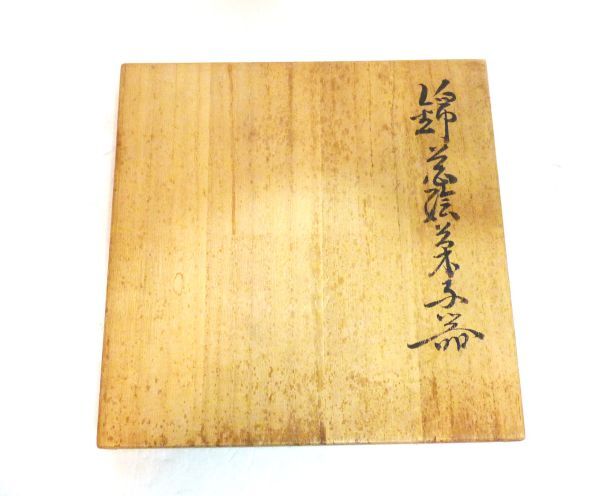 錦花絵菓子器